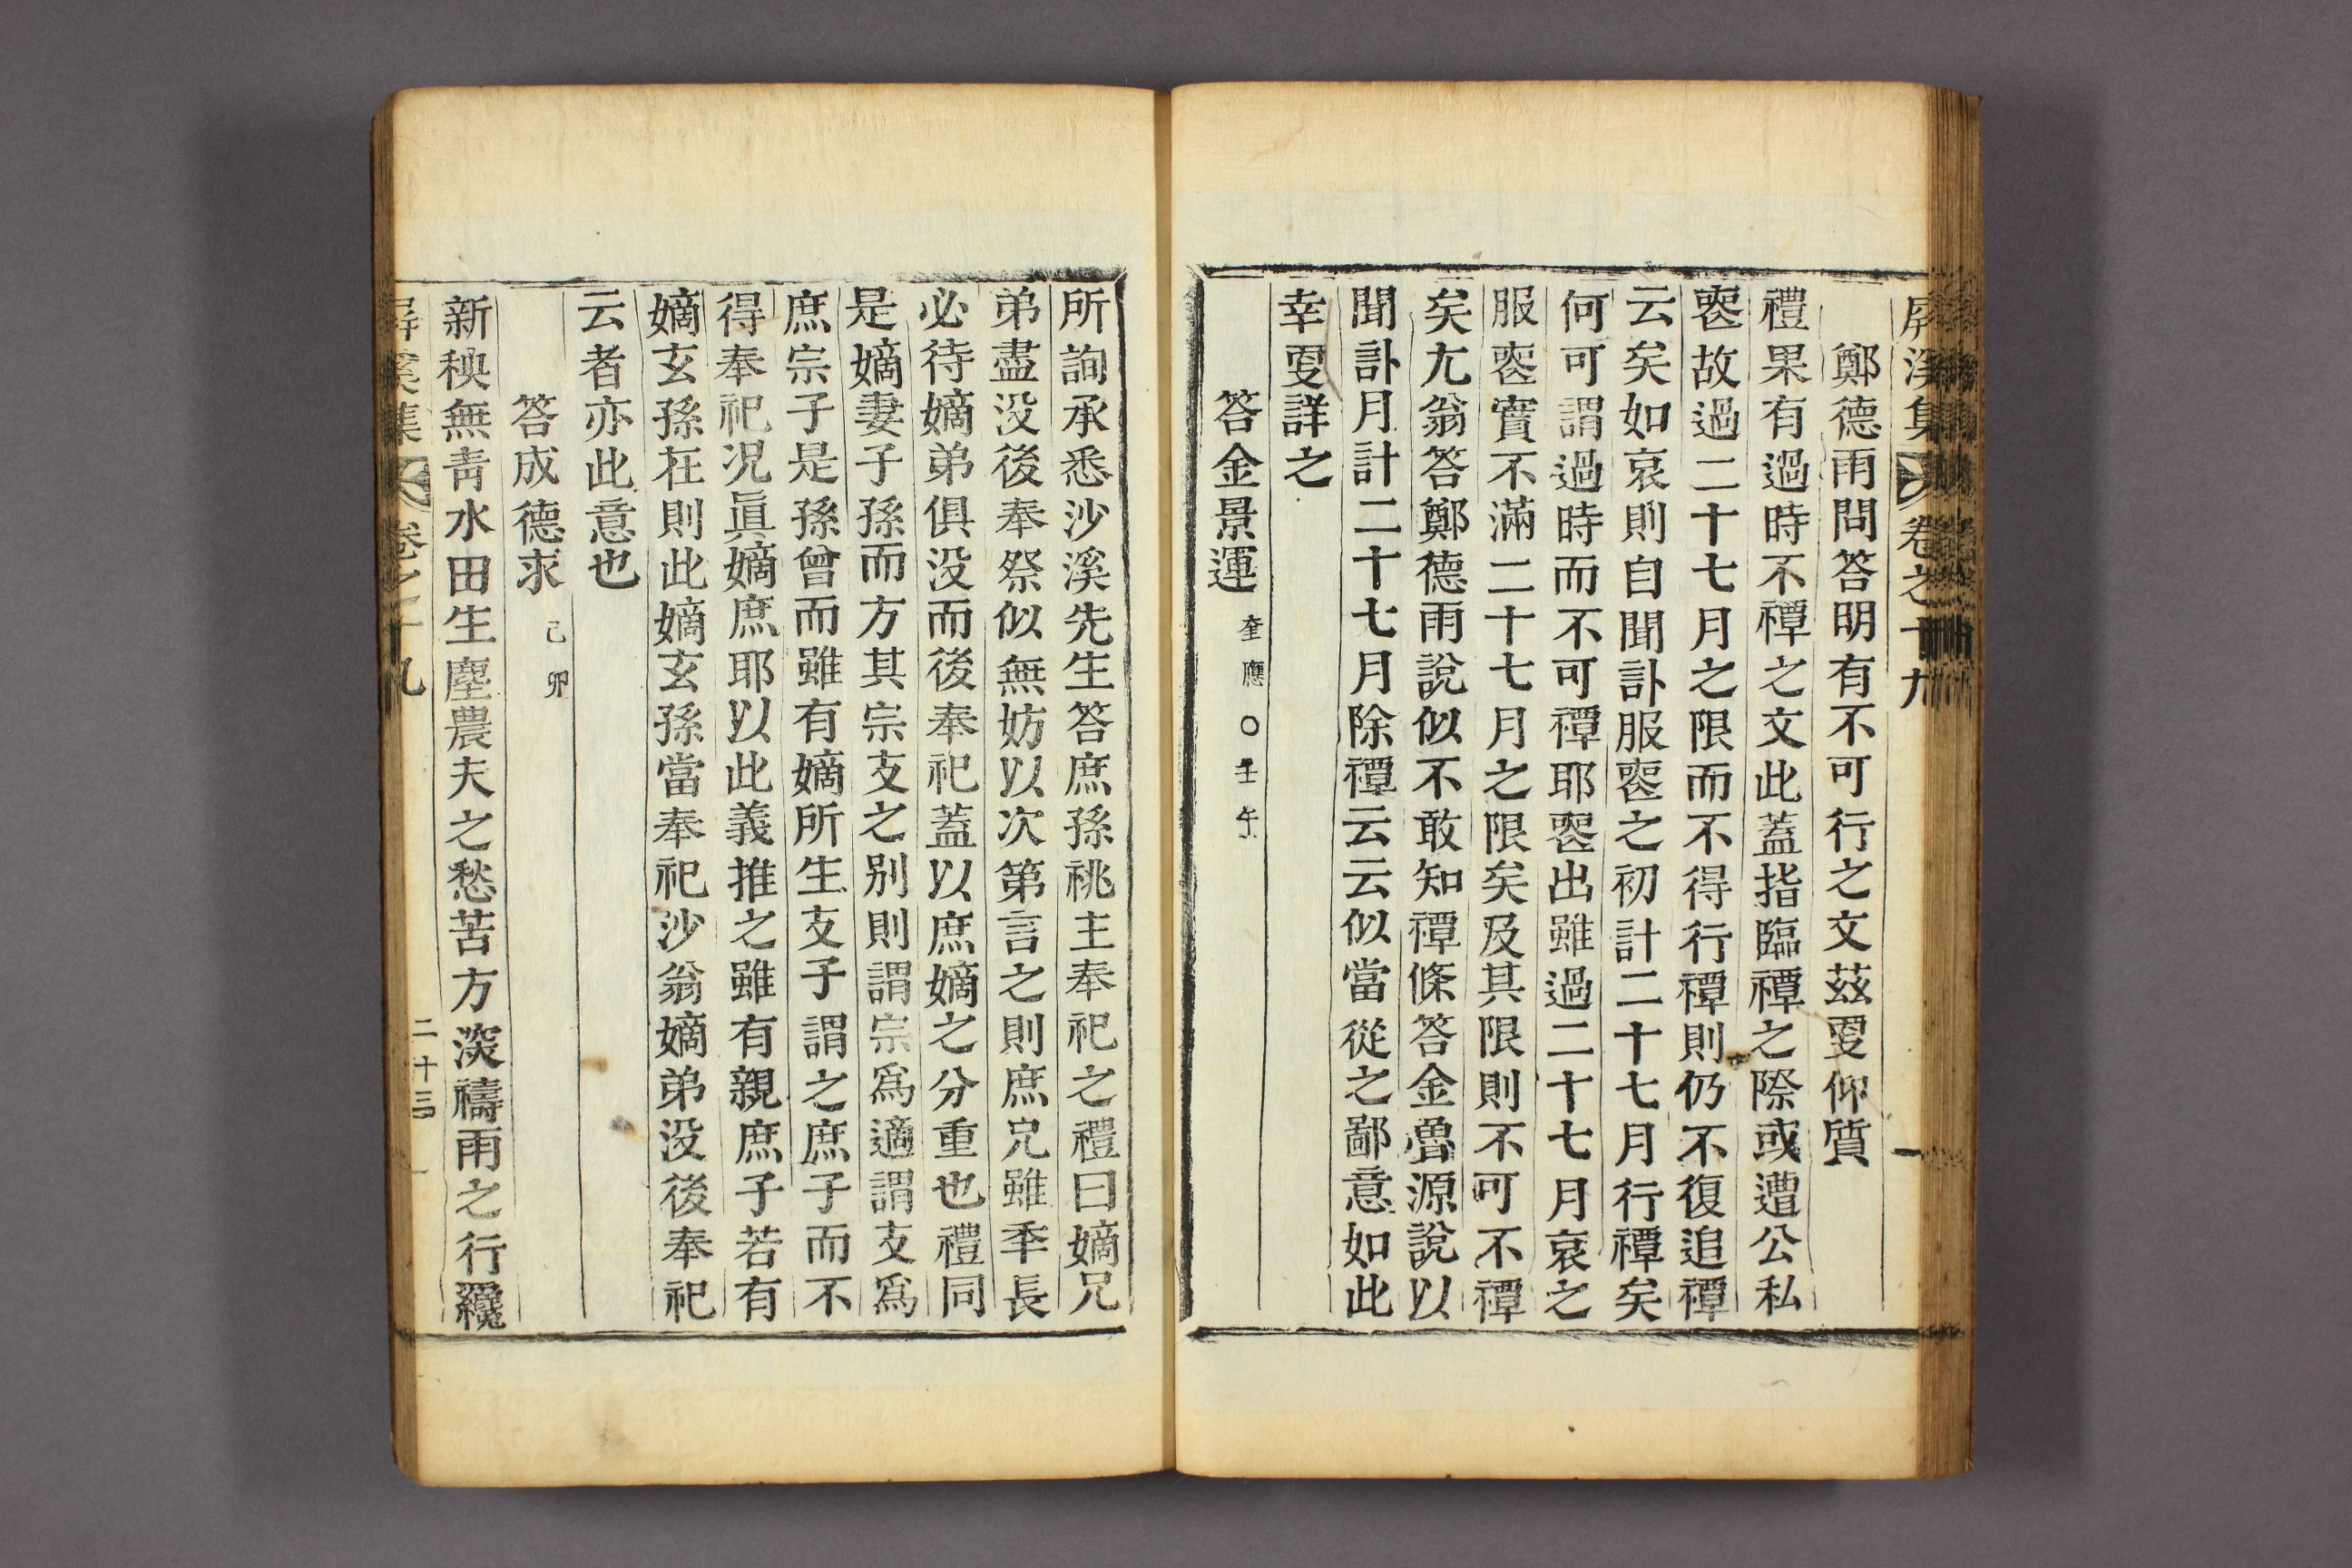 屛溪集 卷之十九
鄭德雨問答明有不可行之文茲更仰質
禮果有過時不禫之文此蓋指臨禫之際或遭公私
喪故過二十七月之限而不得行禫則仍不復追禫
云矣如哀則自聞訃服喪之初計二十七月行禫矣
何可謂過時而不可禫耶喪出雖過二十七月哀之
服喪實不滿二十七月之限矣及其限則不可不禫
矣尤翁答鄭德雨說似不敢知禫條答金魯源說以
聞訃月計二十七月除禫云云似當從之鄙意如此
幸更詳之
答金景運 奎應○壬午
所詢承悉沙溪先生答庶孫祧主奉祀之禮曰嫡兄
弟盡没後奉祭似無妨以次第言之則庶兄雖季長
必待嫡弟俱没而後奉祀蓋以庶嫡之分重也禮同
是嫡妻子孫而方其宗支之别則謂宗爲適謂支爲
庶宗子是孫曾而雖有嫡所生支子謂之庶子而不
得奉祀况眞嫡庶耶以此義推之雖有親庶子若有
嫡玄孫在則此嫡玄孫當奉祀沙翁嫡弟没後奉祀
云者亦此意也
答成德求 己卯
新秧無靑水田生塵農夫之愁苦方深禱雨之行纔
屛溪集 卷之十九 二十三